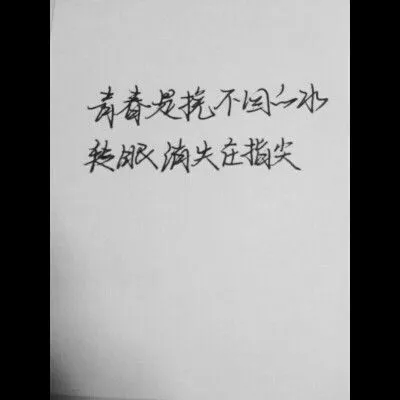 青春是挽不回的水
转眼消失在指尖